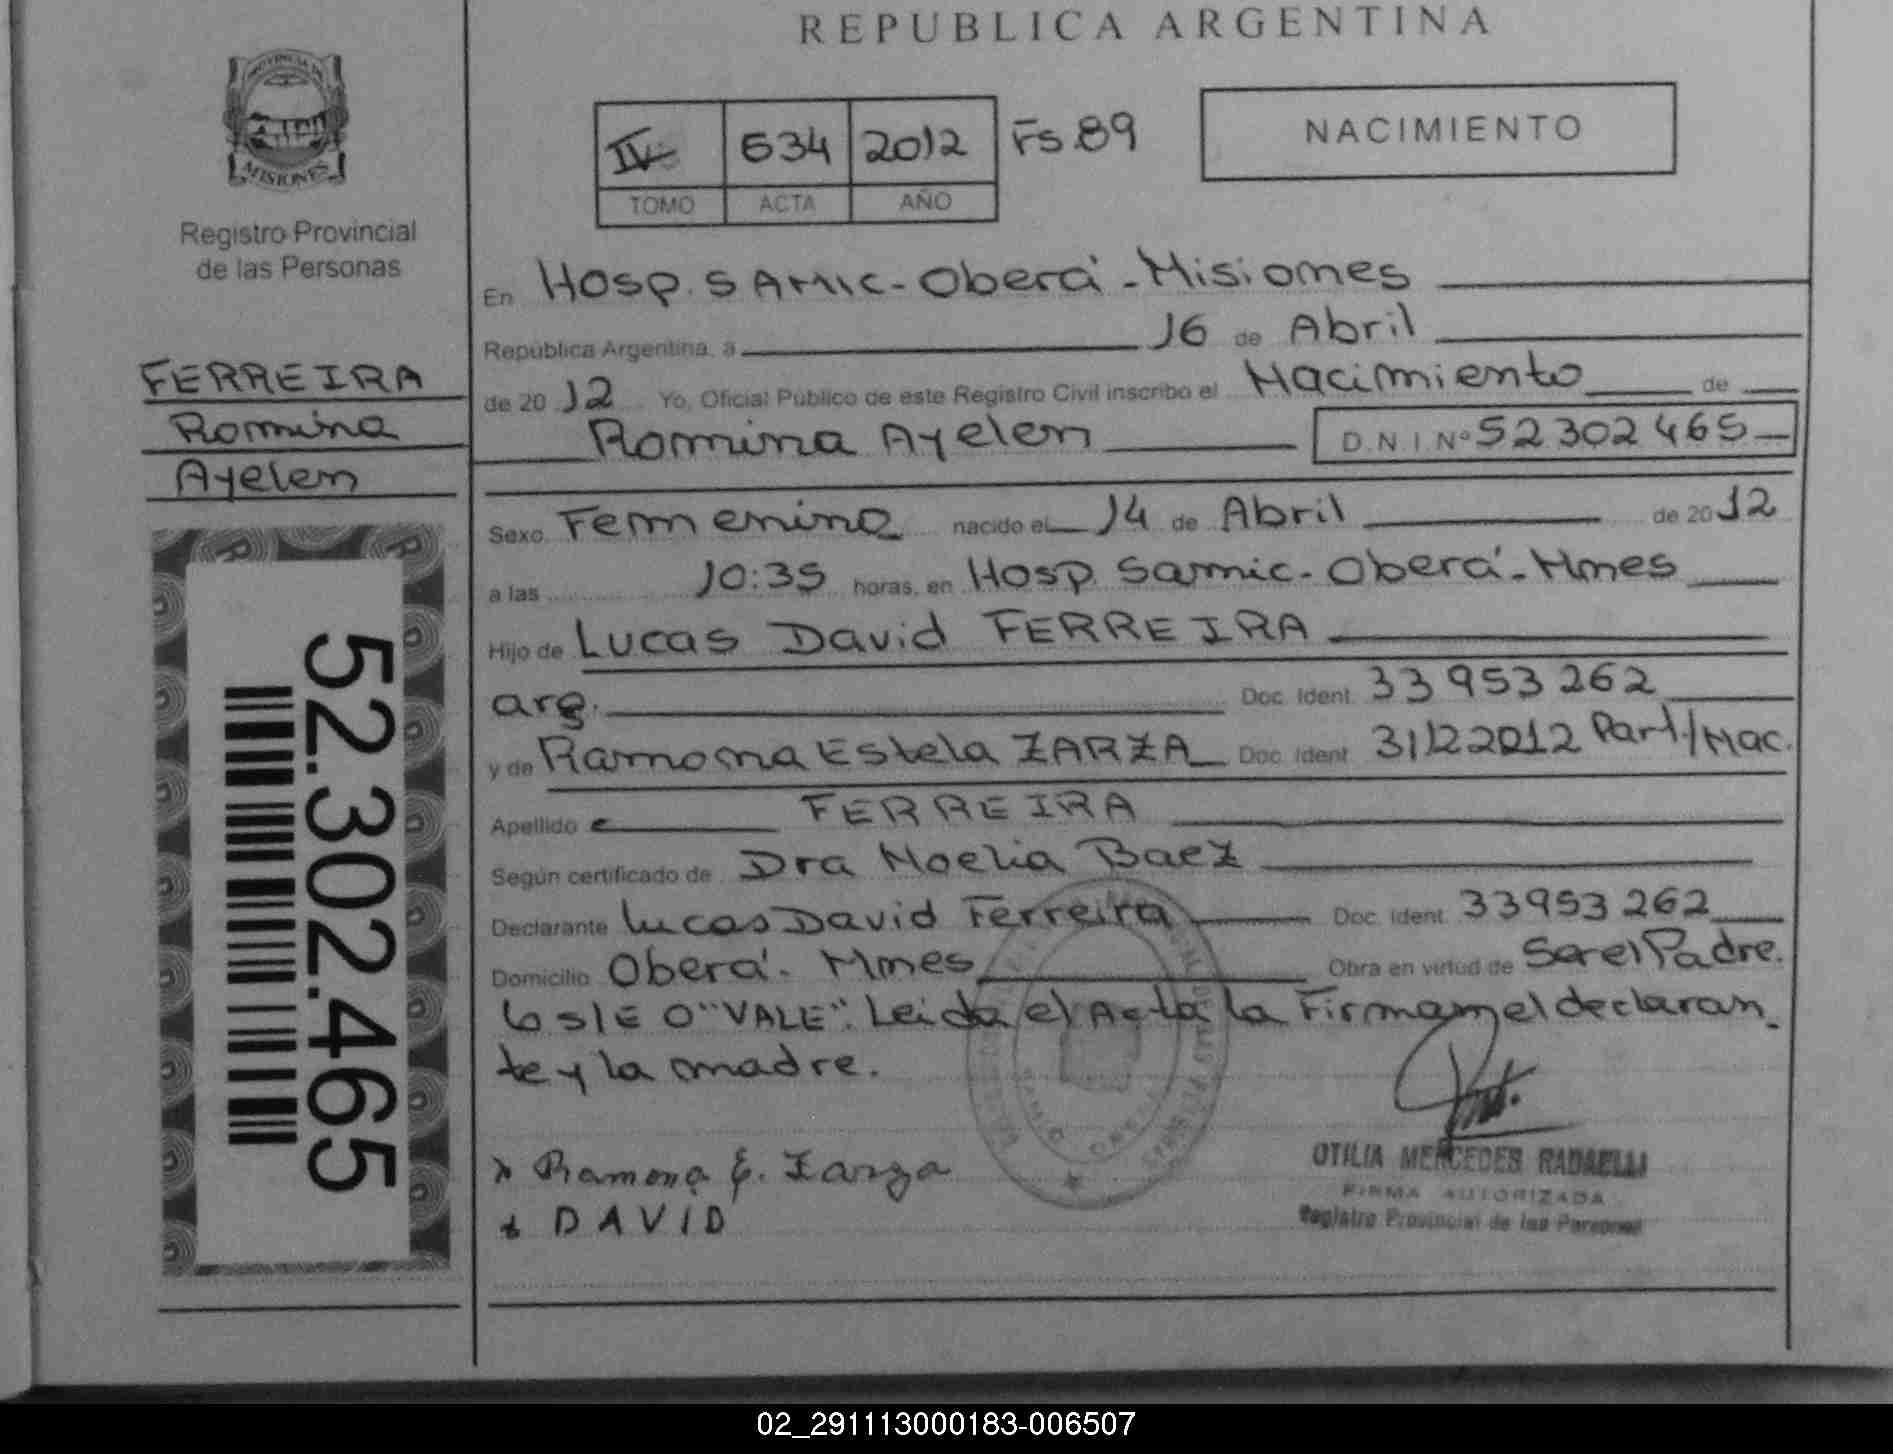 REPUBLICA ARGENTINA
PROVINCIA DE
MISIONES
Registro Provincial
de las Personas
FERREIRA
Romina
Ayelen
52.302.465
IV 634 2012 Fs 89
TOMO ACTA AÑO
NACIMIENTO
En Hosp. SAMIC - Oberá - Misiones
República Argentina, a 16 de Abril
de 2012 Yo, Oficial Público de este Registro Civil inscribo el Nacimiento de
Romina Ayelen D.N.I Nº 52302465
Sexo Femenino nacido el 14 de Abril de 2012
a las 10:35 horas, en Hosp. Samic - Oberá - Mnes
Hijo de Lucas David FERREIRA
arg. Doc. Ident. 33953262
y de Ramona Estela ZARZA Doc. Ident. Part/Nac.
Apellido FERREIRA
Según certificado de Dra Noelia Baez
Declarante Lucas David Ferreira Doc. Ident. 33953262
Domicilio Oberá - Mnes Obra en virtud de Ser el Padre.
6 s/E O "VALE". Leida el Acta la Firman el declaran
te y la madre.
x Ramona E. Zarza
x DAVID
OTILIA MERCEDES RADAELLI
FIRMA AUTORIZADA
Registro Provincial de las Personas
02_291113000183-006507